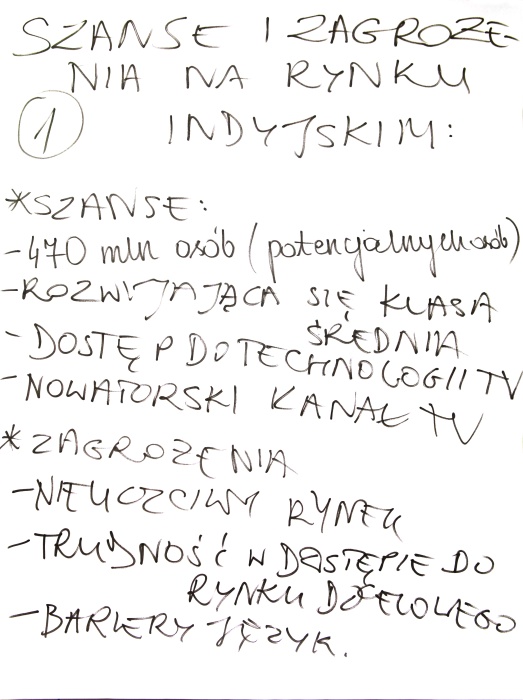 SZANSE I ZAGROŻE-
NIA NA RYNKU
1 INDYJSKIM:
*SZANSE:
-470 mln osób (potencjalnych osób)
-ROZWIJAJĄCA SIĘ KLASA
ŚREDNIA
-DOSTĘP DO TECHNOLOGII TV
-NOWATORSKI KANAŁ TV
*ZAGROŻENIA
-NIEUCZCIWY RYNEK
-TRUDNOŚĆ W DOSTĘPIE DO
RYNKU DOCELOWEGO
-BARIERY JĘZYK.